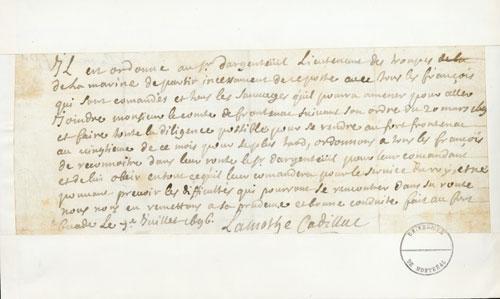 IL est ordonné au sr. dargenteüil Lieutenant des troupes de la
de la marine de partir incessament de ce poste avec tous les françois
qui sont comandés et tous les sauvages quil pourra amener pour aller
Joindre monsieur le conte de frontenac suivant son ordre du 20 mars
et faire toute la diligence possible pour se rendre au fort frontenac
au vingtieme de ce mois pour le plus tard, ordonnons a tous les françois
de reconnoitre dans leur route le sr. dargenteüil pour leur comandant
et de lui obeir en tout ce quil leur comandera pour le service du roy, et ne
pouvant prevoir les difficultés qui pourront se rencontrer dans sa route
nous nous en remettons a sa prudence et bonne conduite fait au fort
Buade Le Juillet 1696.
Lamothe Cadillac
UNIVERSITÉ
DE MONTREAL